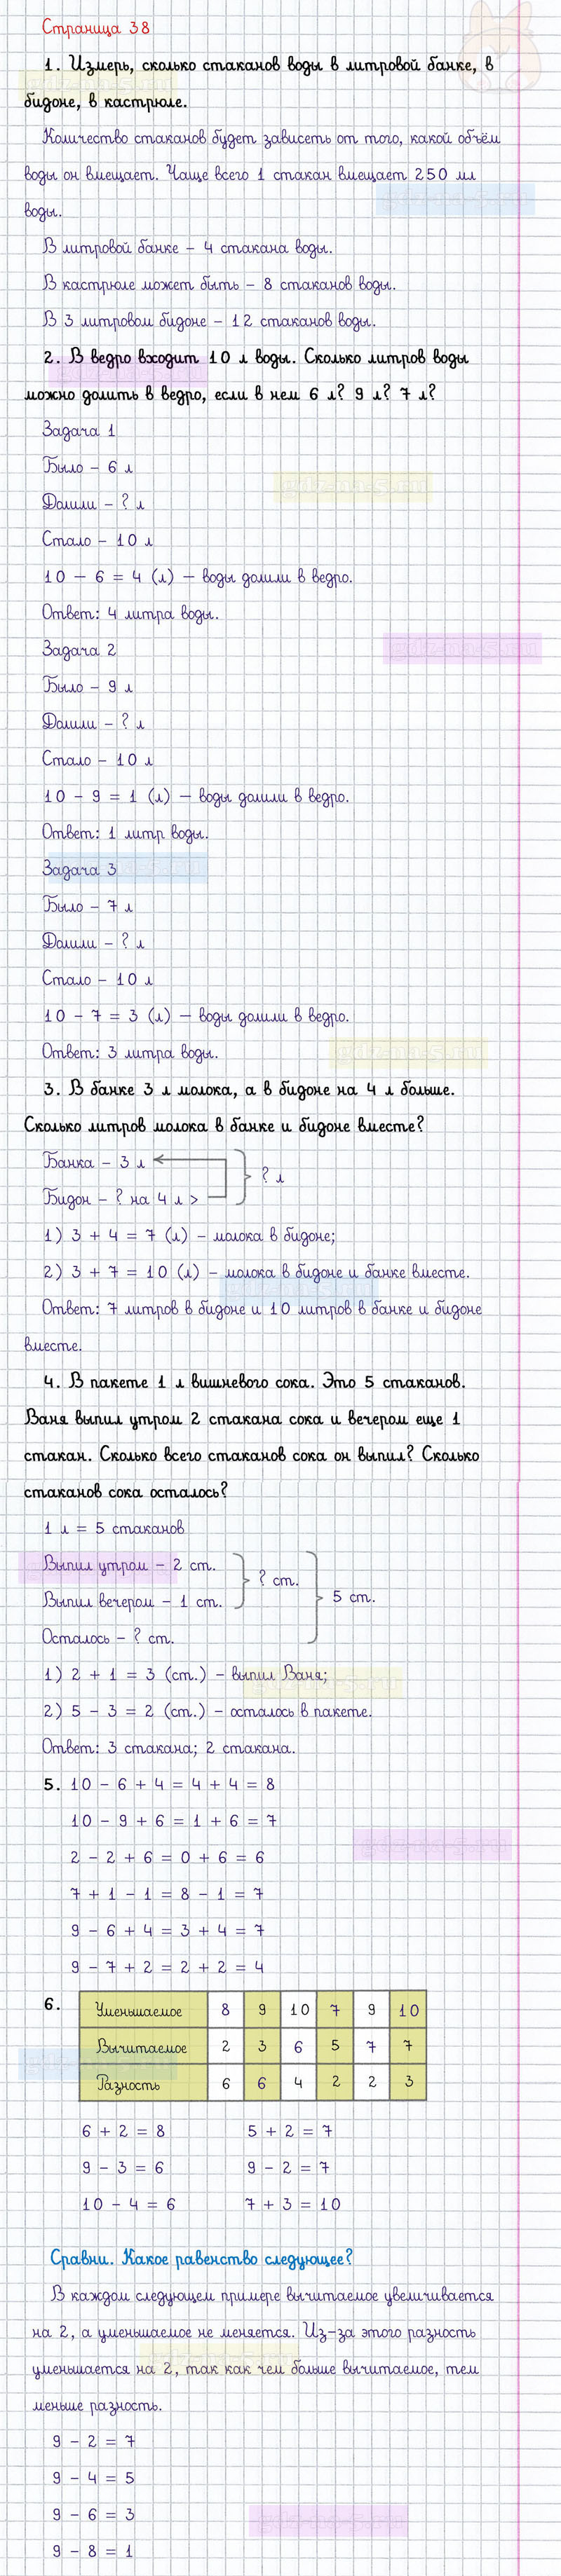 Страница 38
1. Измерь, сколько стаканов воды в литровой банке, в
бидоне, в кастрюле.
Количество стаканов будет зависеть от того, какой объём
воды он вмещает. Чаще всего 1 стакан вмещает 250 мл
воды.
В литровой банке – 4 стакана воды.
В кастрюле может быть – 8 стаканов воды.
В 3 литровом бидоне – 12 стаканов воды.
2. В ведро входит 10 л воды. Сколько литров воды
можно долить в ведро, если в нем 6 л? 9 л? 7 л?
Задача 1
Было – 6 л
gdz-na-5.ru
Долили – ? л
Стало – 10 л
10 – 6 = 4 (л) – воды долили в ведро.
Ответ: 4 литра воды.
Задача 2
gdz-na-5.ru
Было – 9 л
Долили – ? л
Стало – 10 л
10 – 9 = 1 (л) – воды долили в ведро.
Ответ: 1 литр воды.
Задача 3
Было – 7 л
Долили – ? л
Стало – 10 л
10 – 7 = 3 (л) – воды долили в ведро.
Ответ: 3 литра воды.
gdz-na-5.ru
3. В банке 3 л молока, а в бидоне на 4 л больше.
Сколько литров молока в банке и бидоне вместе?
Банка – 3 л
? л
Бидон – ? на 4 л >
1) 3 + 4 = 7 (л) – молока в бидоне;
2) 3 + 7 = 10 (л) – молока в бидоне и банке вместе.
Ответ: 7 литров в бидоне и 10 литров в банке и бидоне
вместе.
4. В пакете 1 л вишневого сока. Это 5 стаканов.
Ваня выпил утром 2 стакана сока и вечером еще 1
стакан. Сколько всего стаканов сока он выпил? Сколько
стаканов сока осталось?
1 л = 5 стаканов
Выпил утром – 2 ст.
? ст.
5 ст.
Выпил вечером – 1 ст.
Осталось – ? ст.
1) 2 + 1 = 3 (ст.) – выпил Ваня;
2) 5 – 3 = 2 (ст.) – осталось в пакете.
Ответ: 3 стакана; 2 стакана.
5. 10 – 6 + 4 = 4 + 4 = 8
10 – 9 + 6 = 1 + 6 = 7
gdz-na-5.ru
2 – 2 + 6 = 0 + 6 = 6
7 + 1 – 1 = 8 – 1 = 7
9 – 6 + 4 = 3 + 4 = 7
9 – 7 + 2 = 2 + 2 = 4
6.
Уменьшаемое 8 9 10 7 9 10
Вычитаемое 2 3 6 5 7 7
Разность 6 6 4 2 2 3
6 + 2 = 8 5 + 2 = 7
9 – 3 = 6 9 – 2 = 7
10 – 4 = 6 7 + 3 = 10
Сравни. Какое равенство следующее?
В каждом следующем примере вычитаемое увеличивается
на 2, а уменьшаемое не меняется. Из-за этого разность
уменьшается на 2, так как чем больше вычитаемое, тем
меньше разность.
9 – 2 = 7
9 – 4 = 5
9 – 6 = 3
gdz-na-5.ru
9 – 8 = 1